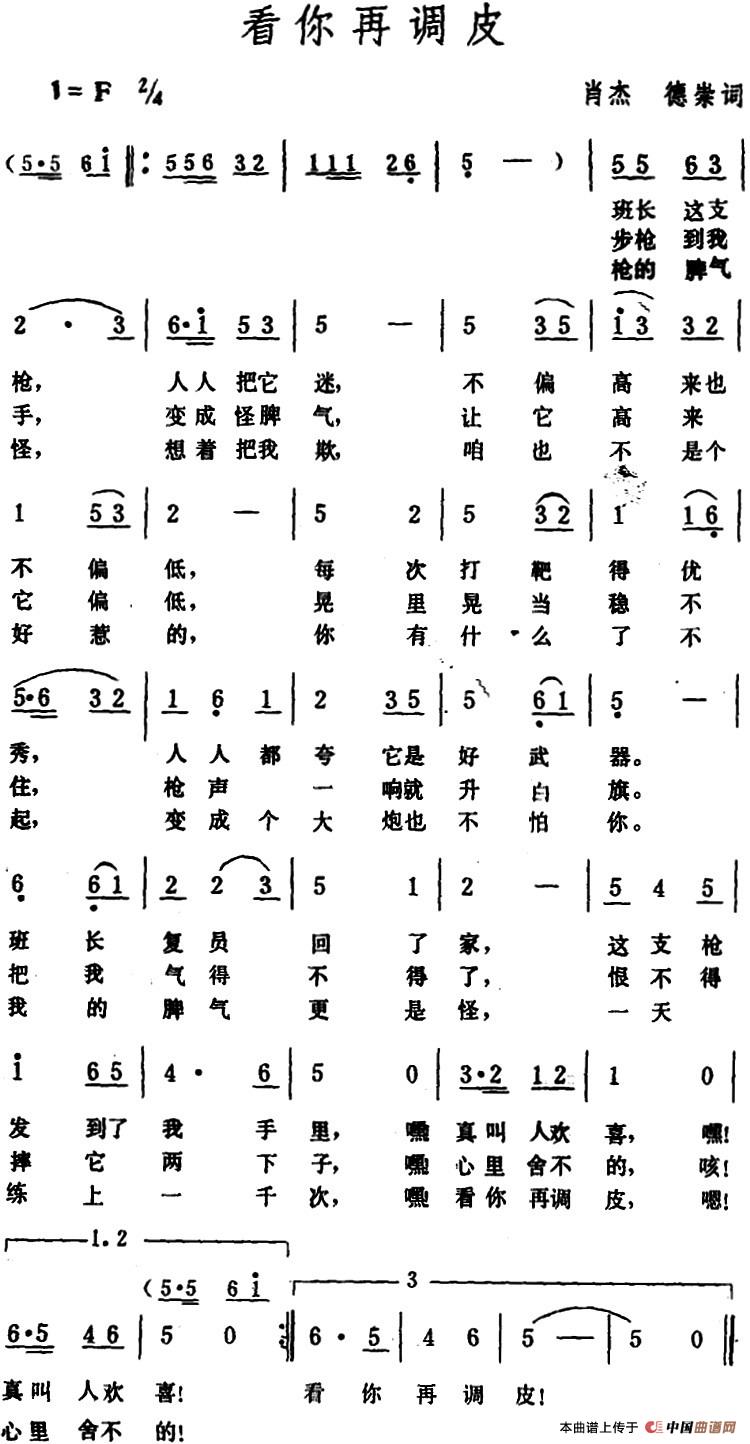 看你再调皮
1=F 2/4
肖杰 德崇词
(5·5 6i ‖: 556 32 | 111 26 | 5 — ) | 55 63
班长 这支
步枪 到我
枪的 脾气
2 · 3 | 6·i 53 | 5 — | 5 35 | i3 32 |
枪, 人人 把它 迷, 不 偏 高 来也
手, 变成 怪脾 气, 让 它 高 来
怪, 想着 把我 欺, 咱 也 不 是个
1 53 | 2 — | 5 2 | 5 32 | 1 16 |
不 偏 低, 每 次 打 靶 得 优
它 偏 低, 晃 里 晃 当 稳 不
好 惹 的, 你 有 什 么 了 不
5·6 32 | 1 6 1 | 2 35 | 5 61 | 5 — |
秀, 人 人 都 夸 它是 好 武 器。
住, 枪 声 一 响就 升 白 旗。
起, 变 成 个 大 炮也 不 怕 你。
6 61 | 2 2 3 | 5 1 | 2 — | 5 4 5 |
班 长 复 员 回 了 家, 这 支 枪
把 我 气 得 不 得 了, 恨 不 得
我 的 脾 气 更 是 怪, 一 天
i 65 | 4 · 6 | 5 0 | 3·2 12 | 1 0 |
发 到了 我 手 里, 嘿! 真叫 人欢 喜, 嘿!
摔 它 两 下 子, 嘿! 心里 舍不 的, 咳!
练 上 一 千 次, 嘿! 看你 再调 皮, 嗯!
1.2
(5·5 6i
3
6·5 46 | 5 0 :‖ 6 · 5 | 4 6 | 5 — | 5 0 ‖
真叫 人欢 喜! 看 你 再 调 皮!
心里 舍不 的!
本曲谱上传于 中国曲谱网